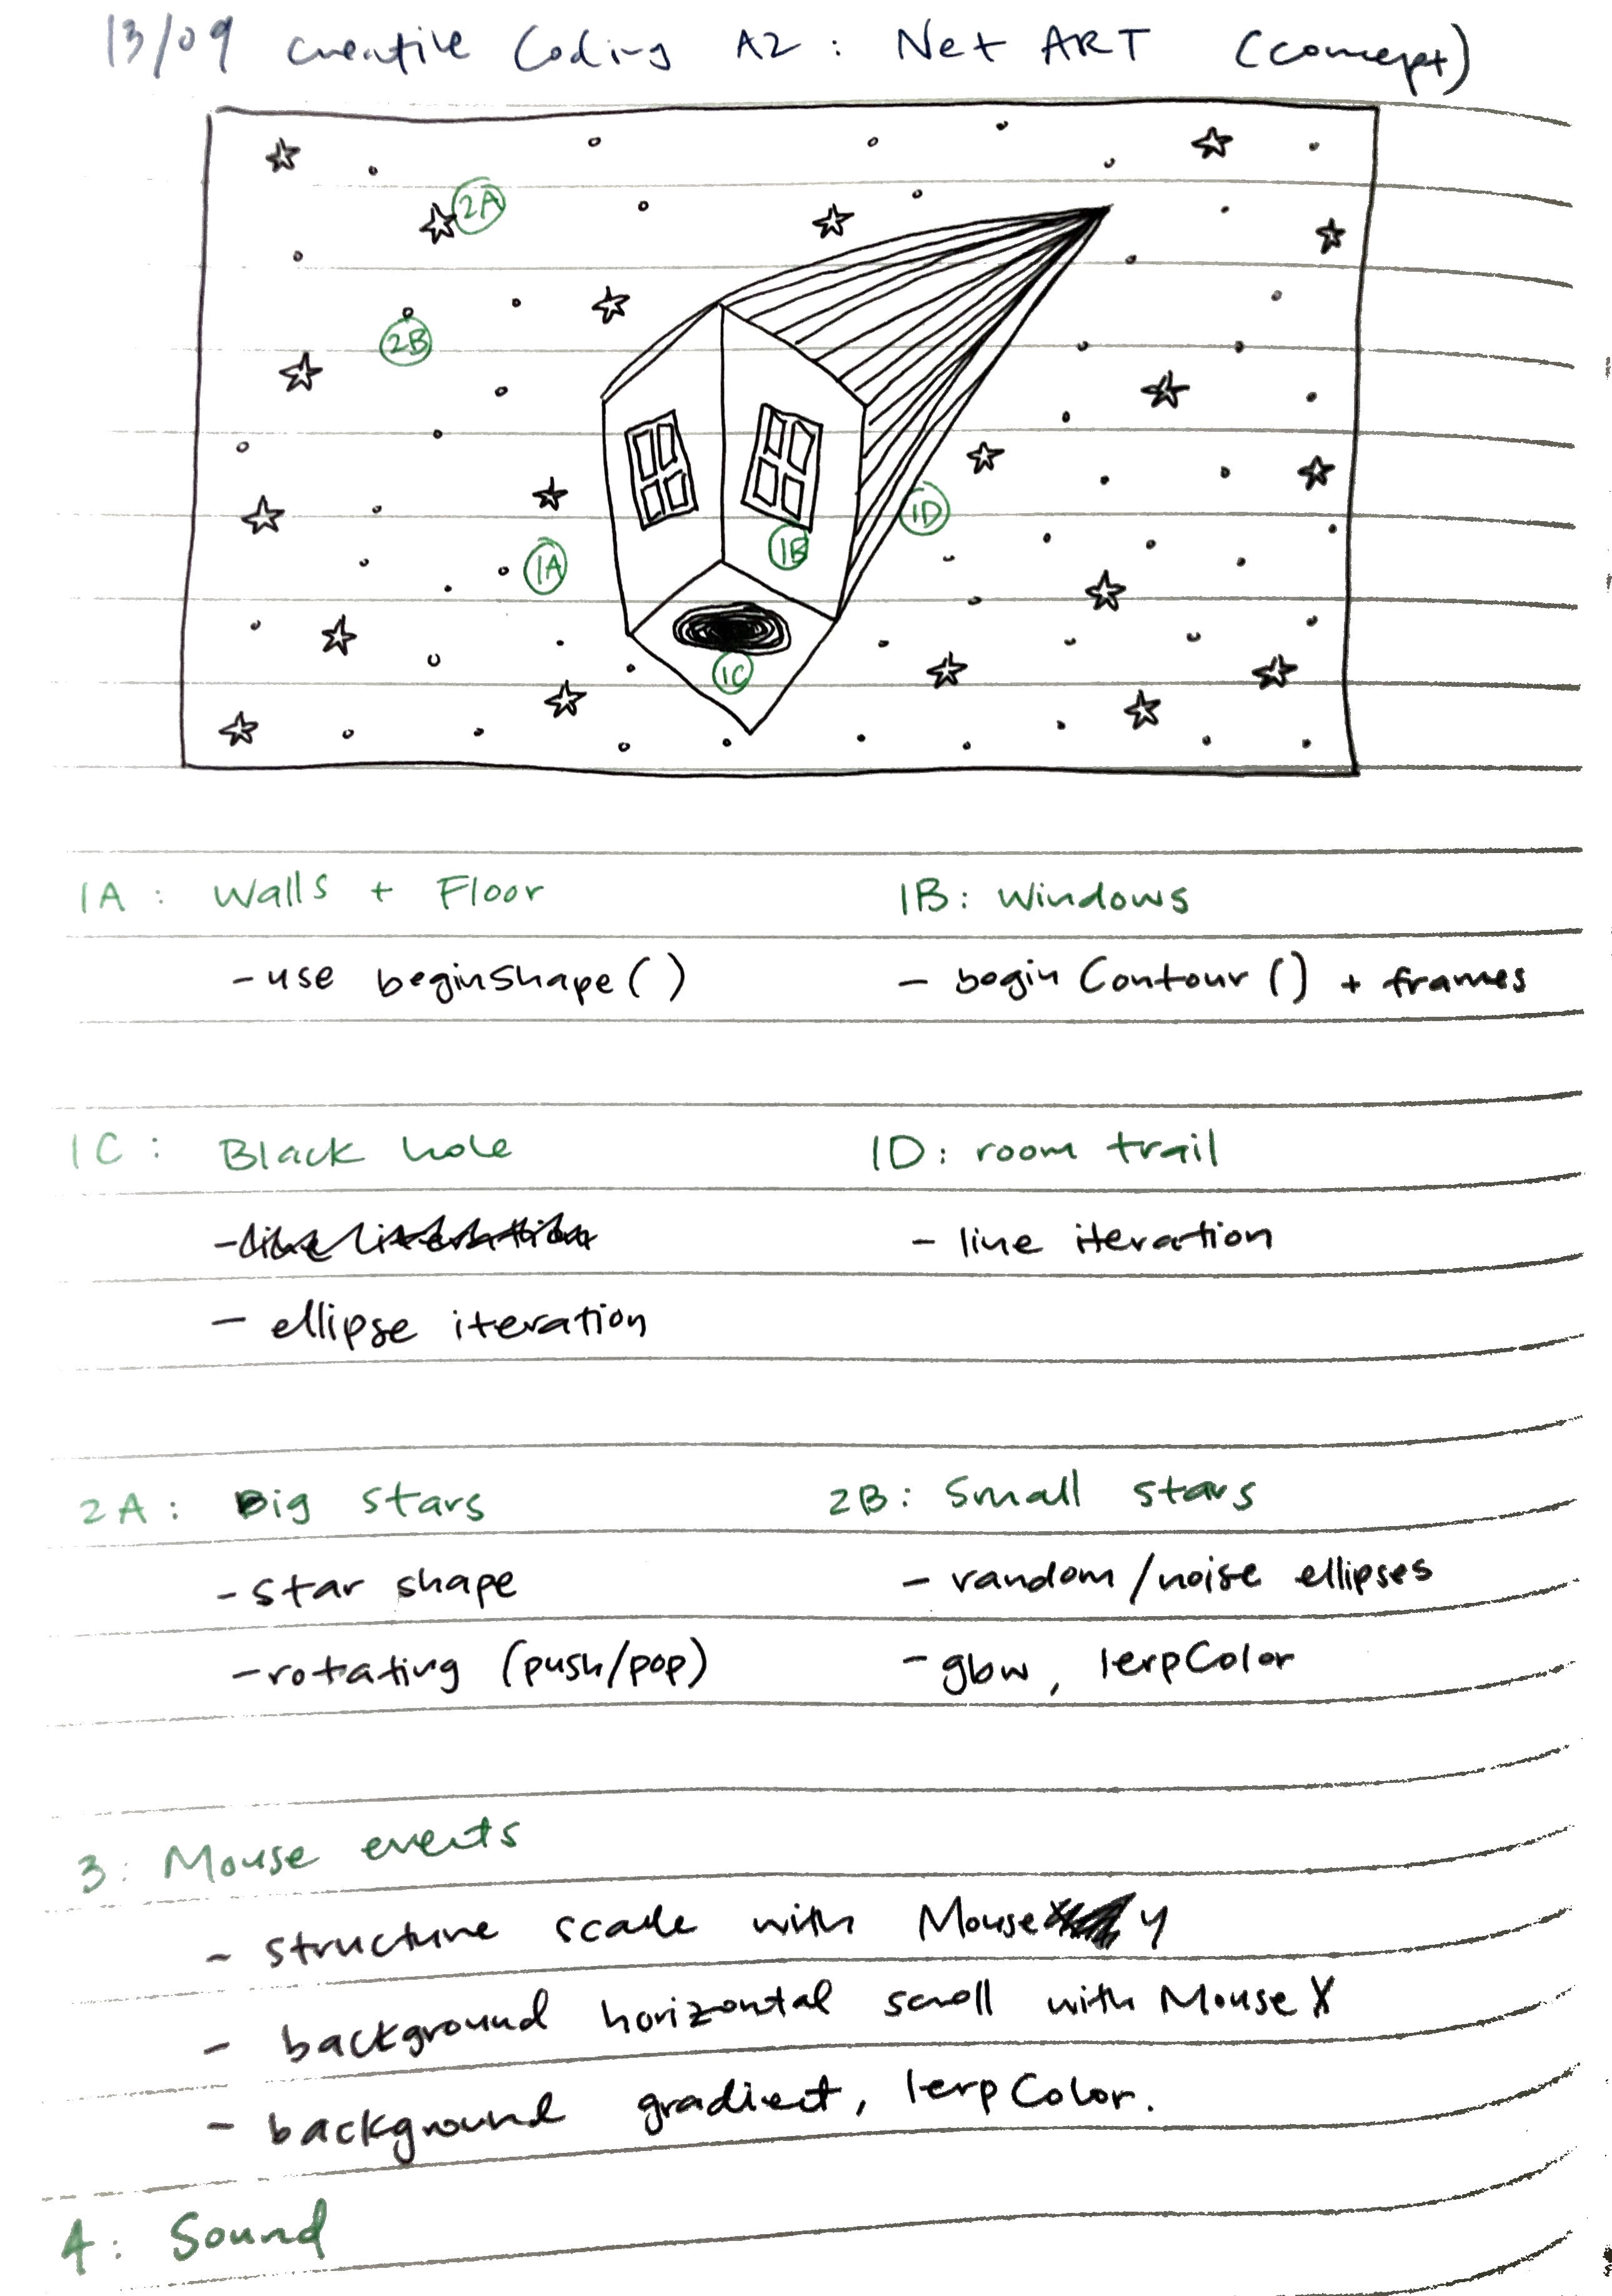 13/09 Creative Coding A2: Net ART (concept)
2A
2B
1D
1B
1A
1C
1A: Walls + Floor
- use beginShape()
1B: Windows
- begin Contour () + frames
1C: Black hole
- ellipse iteration
1D: room trail
- line iteration
2A: Big stars
- star shape
- rotating (push/pop)
2B: Small stars
- random/noise ellipses
- gbw, lerpColor
3: Mouse events
- structure scale with Mouse Y
- background horizontal scroll with Mouse X
- background gradient, lerpColor.
4: Sound